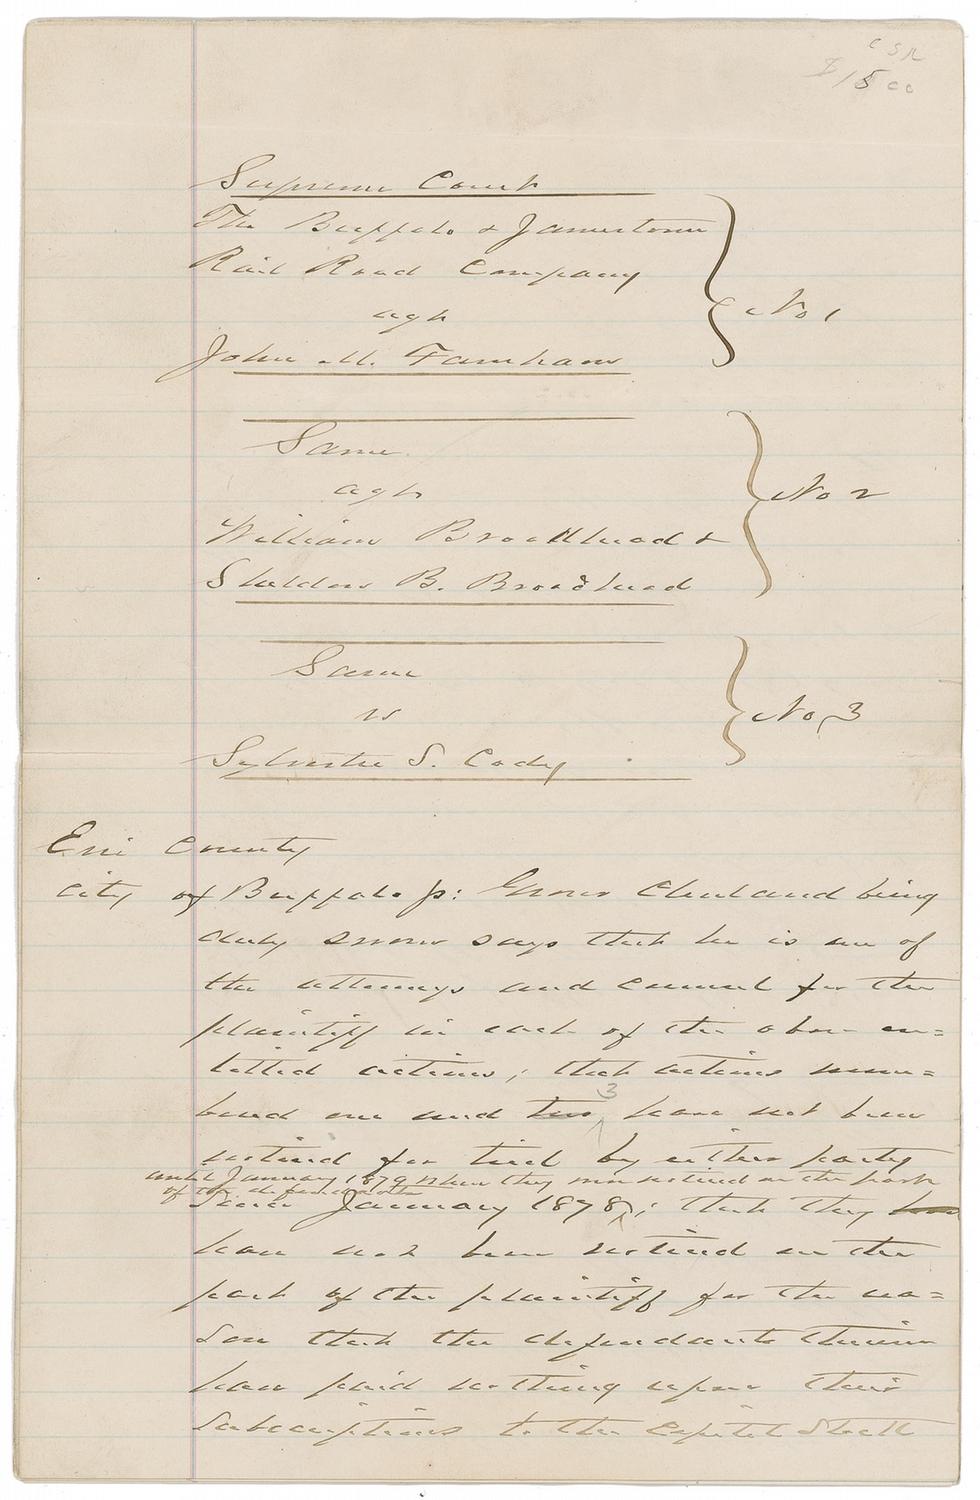 CSR
$1500
Supreme Court
The Buffalo & Jamestown
Rail Road Company
agst
No 1
John M. Farnham
Same
agst
No 2
William Broadhead &
Sheldon B. Broadhead
Same
vs
No, 3
Sylvester S. Cody
Erie County
City of Buffalo ss: Grover Cleveland being
duly sworn says that he is one of
the attorneys and counsel for the
plaintiff in each of the above en=
titled actions; that actions num=
bered one and two 3 have not been
noticed for trial by either party
until January 1879 when they were noticed on the part
of the defendants
since January 1878; that they have
have not been noticed on the
part of the plaintiff for the rea=
son that the defendants therein
have paid nothing upon their
subscriptions to the Capital Stock